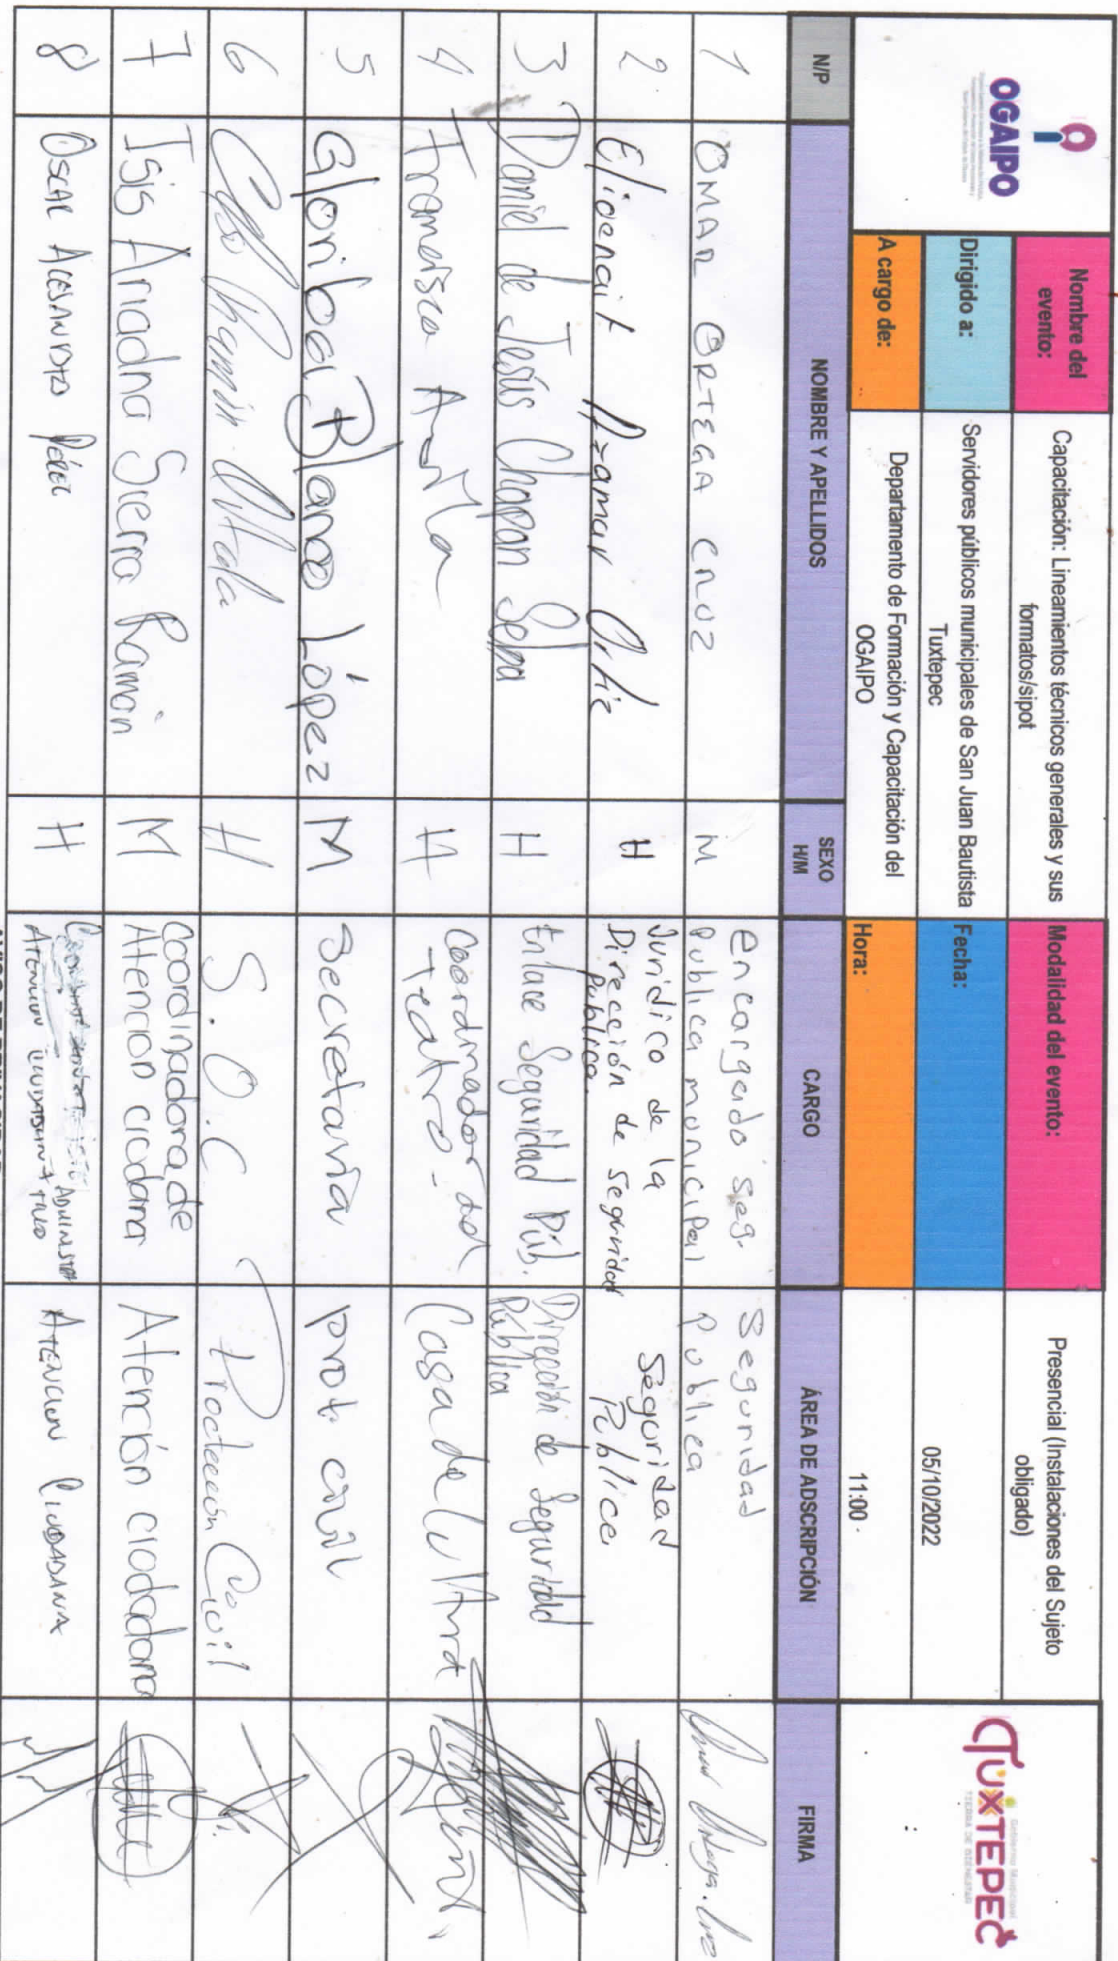 OGAIPO
Nombre del evento:
Capacitación: Lineamientos técnicos generales y sus formatos/sipot
Modalidad del evento:
Presencial (Instalaciones del Sujeto obligado)
Gobierno Municipal
TUXTEPEC
TIERRA DE BIENESTAR
Dirigido a:
Servidores públicos municipales de San Juan Bautista Tuxtepec
Fecha:
05/10/2022
A cargo de:
Departamento de Formación y Capacitación del OGAIPO
Hora:
11:00
N/P
NOMBRE Y APELLIDOS
SEXO H/M
CARGO
ÁREA DE ADSCRIPCIÓN
FIRMA
1 OMAR ORTEGA CRUZ M encargado seg. publica municipal Seguridad publica
2 Elidenait Azamar Ortiz H Juridico de la Dirección de seguridad Publica Seguridad Publica
3 Daniel de Jesús Chapan H Enlace Seguridad Púb. Dirección de Seguridad Pública
4 H Coordinador del Teatro. Casa de Cultura
5 Blanco López M Secretaria prot. civil
6 H S.O.C Protección Civil
7 Isis Ariadna Sierra Ramón M Coordinadora de Atención ciudadana Atención ciudadana
8 OSCAR Pérez H ATENCION CIUDADANA